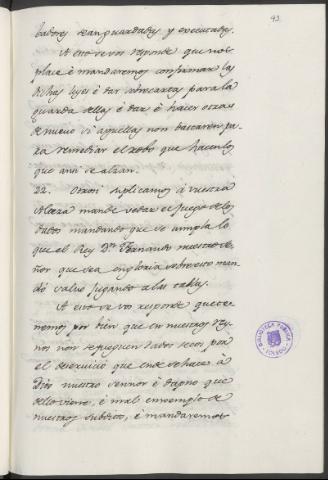 93.
badores sean guardados y executados.
A esto se vos responde que nos
place è mandaremos confirmar las
dichas leyes è dar sobrecartas para la
guarda dellas è dar è hacer otras
de nuevo si aquellas non bastaren pa-
ra remediar el robo que hacen los
que ansi se alzan.
22. Otrosi suplicamos à vuestra
Alteza mande vedar el juego de los
dados mandando que se cumpla lo
que el Rey Dn Fernando nuestro Se-
ñor que sea en gloria sobre esto man-
dó salvo jugando a las tablas.
A esto se vos responde que te-
nemos por bien que en nuestros Rey-
nos non se jueguen dados secos por
el deservicio que ende se hace à
Dios nuestro Sennor è dapno que
dello viene, è mal enxemplo de
nuestros subditos, è mandaremos
BIBLIOTECA PUBLICA
TOLEDO